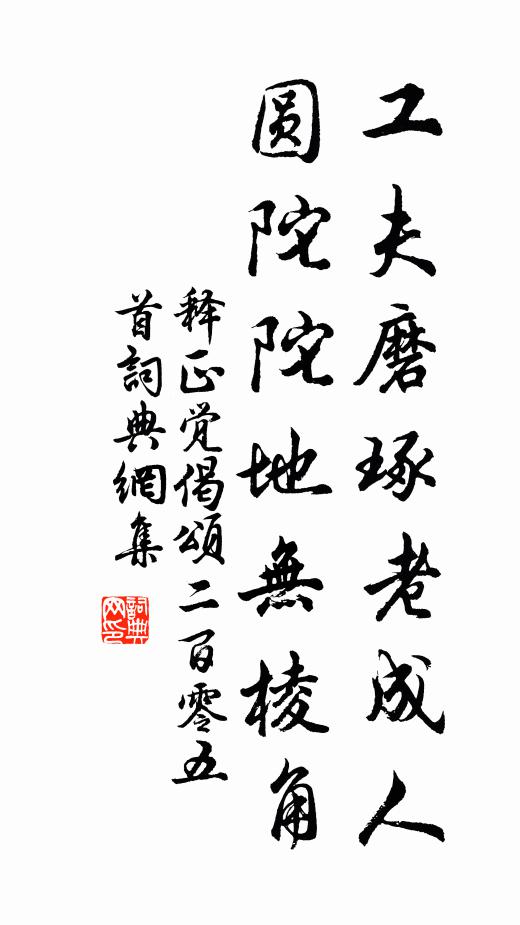 工夫磨琢老成人
圆陀陀地無棱角
释正觉偈頌二百零五
首詞典網集
詞典网印